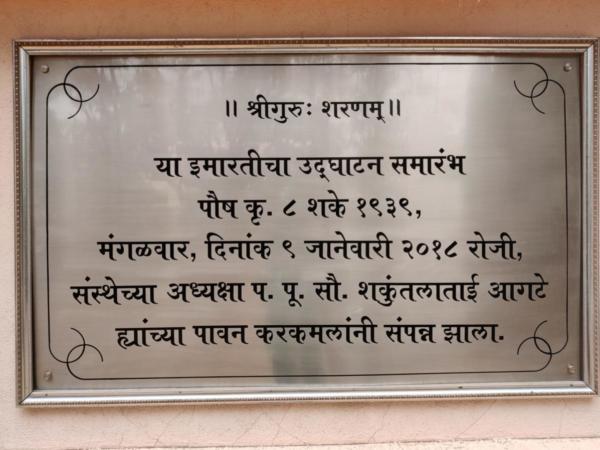 ॥ श्रीगुरुः शरणम् ॥
या इमारतीचा उद्‌घाटन समारंभ
पौष कृ. ८ शके १९३९,
मंगळवार, दिनांक ९ जानेवारी २०१८ रोजी,
संस्थेच्या अध्यक्षा प. पू. सौ. शकुंतलाताई आगटे
ह्यांच्या पावन करकमलांनी संपन्न झाला.